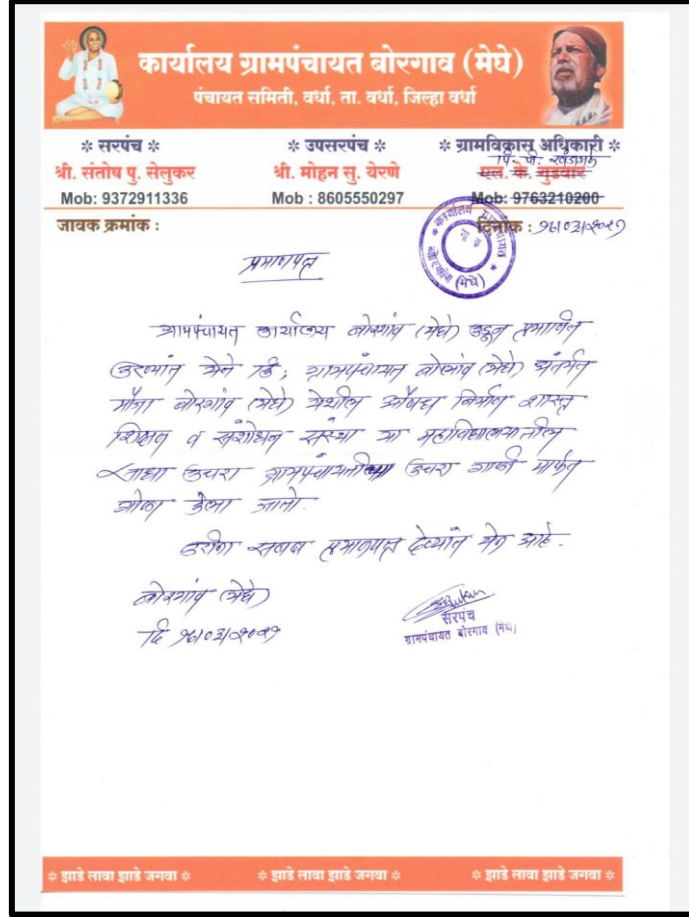 कार्यालय ग्रामपंचायत बोरगाव (मेघे)
पंचायत समिती, वर्धा, ता. वर्धा, जिल्हा वर्धा
❉ सरपंच ❉ ❉ उपसरपंच ❉ ❉ ग्रामविकास अधिकारी ❉
श्री. संतोष पु. सेलुकर श्री. मोहन सु. येरणे एल. के. गुडवार
Mob: 9372911336 Mob : 8605550297 Mob: 9763210200
जावक क्रमांक : दिनांक : १६/०३/२०२१
कार्यालय ग्रामपंचायत बोरगांव (मेघे)
प्रमाणपत्र
ग्रामपंचायत कार्यालय बोरगांव (मेघे) कडून प्रमाणित
करण्यांत येते कि; ग्रामपंचायत बोरगांव (मेघे) अंतर्गत
मौजा बोरगांव (मेघे) येथील औषध निर्माण शास्त्र
शिक्षण व संशोधन संस्था या महाविद्यालयातील
साधा कचरा ग्रामपंचायतीच्या कचरा गाडी मार्फत
गोळा केला जातो.
करीता सबब प्रमाणपत्र देण्यांत येत आहे.
बोरगांव (मेघे)
दि १६/०३/२०२१
सरपंच
ग्रामपंचायत बोरगाव (मेघे)
❉ झाडे लावा झाडे जगवा ❉ ❉ झाडे लावा झाडे जगवा ❉ ❉ झाडे लावा झाडे जगवा ❉